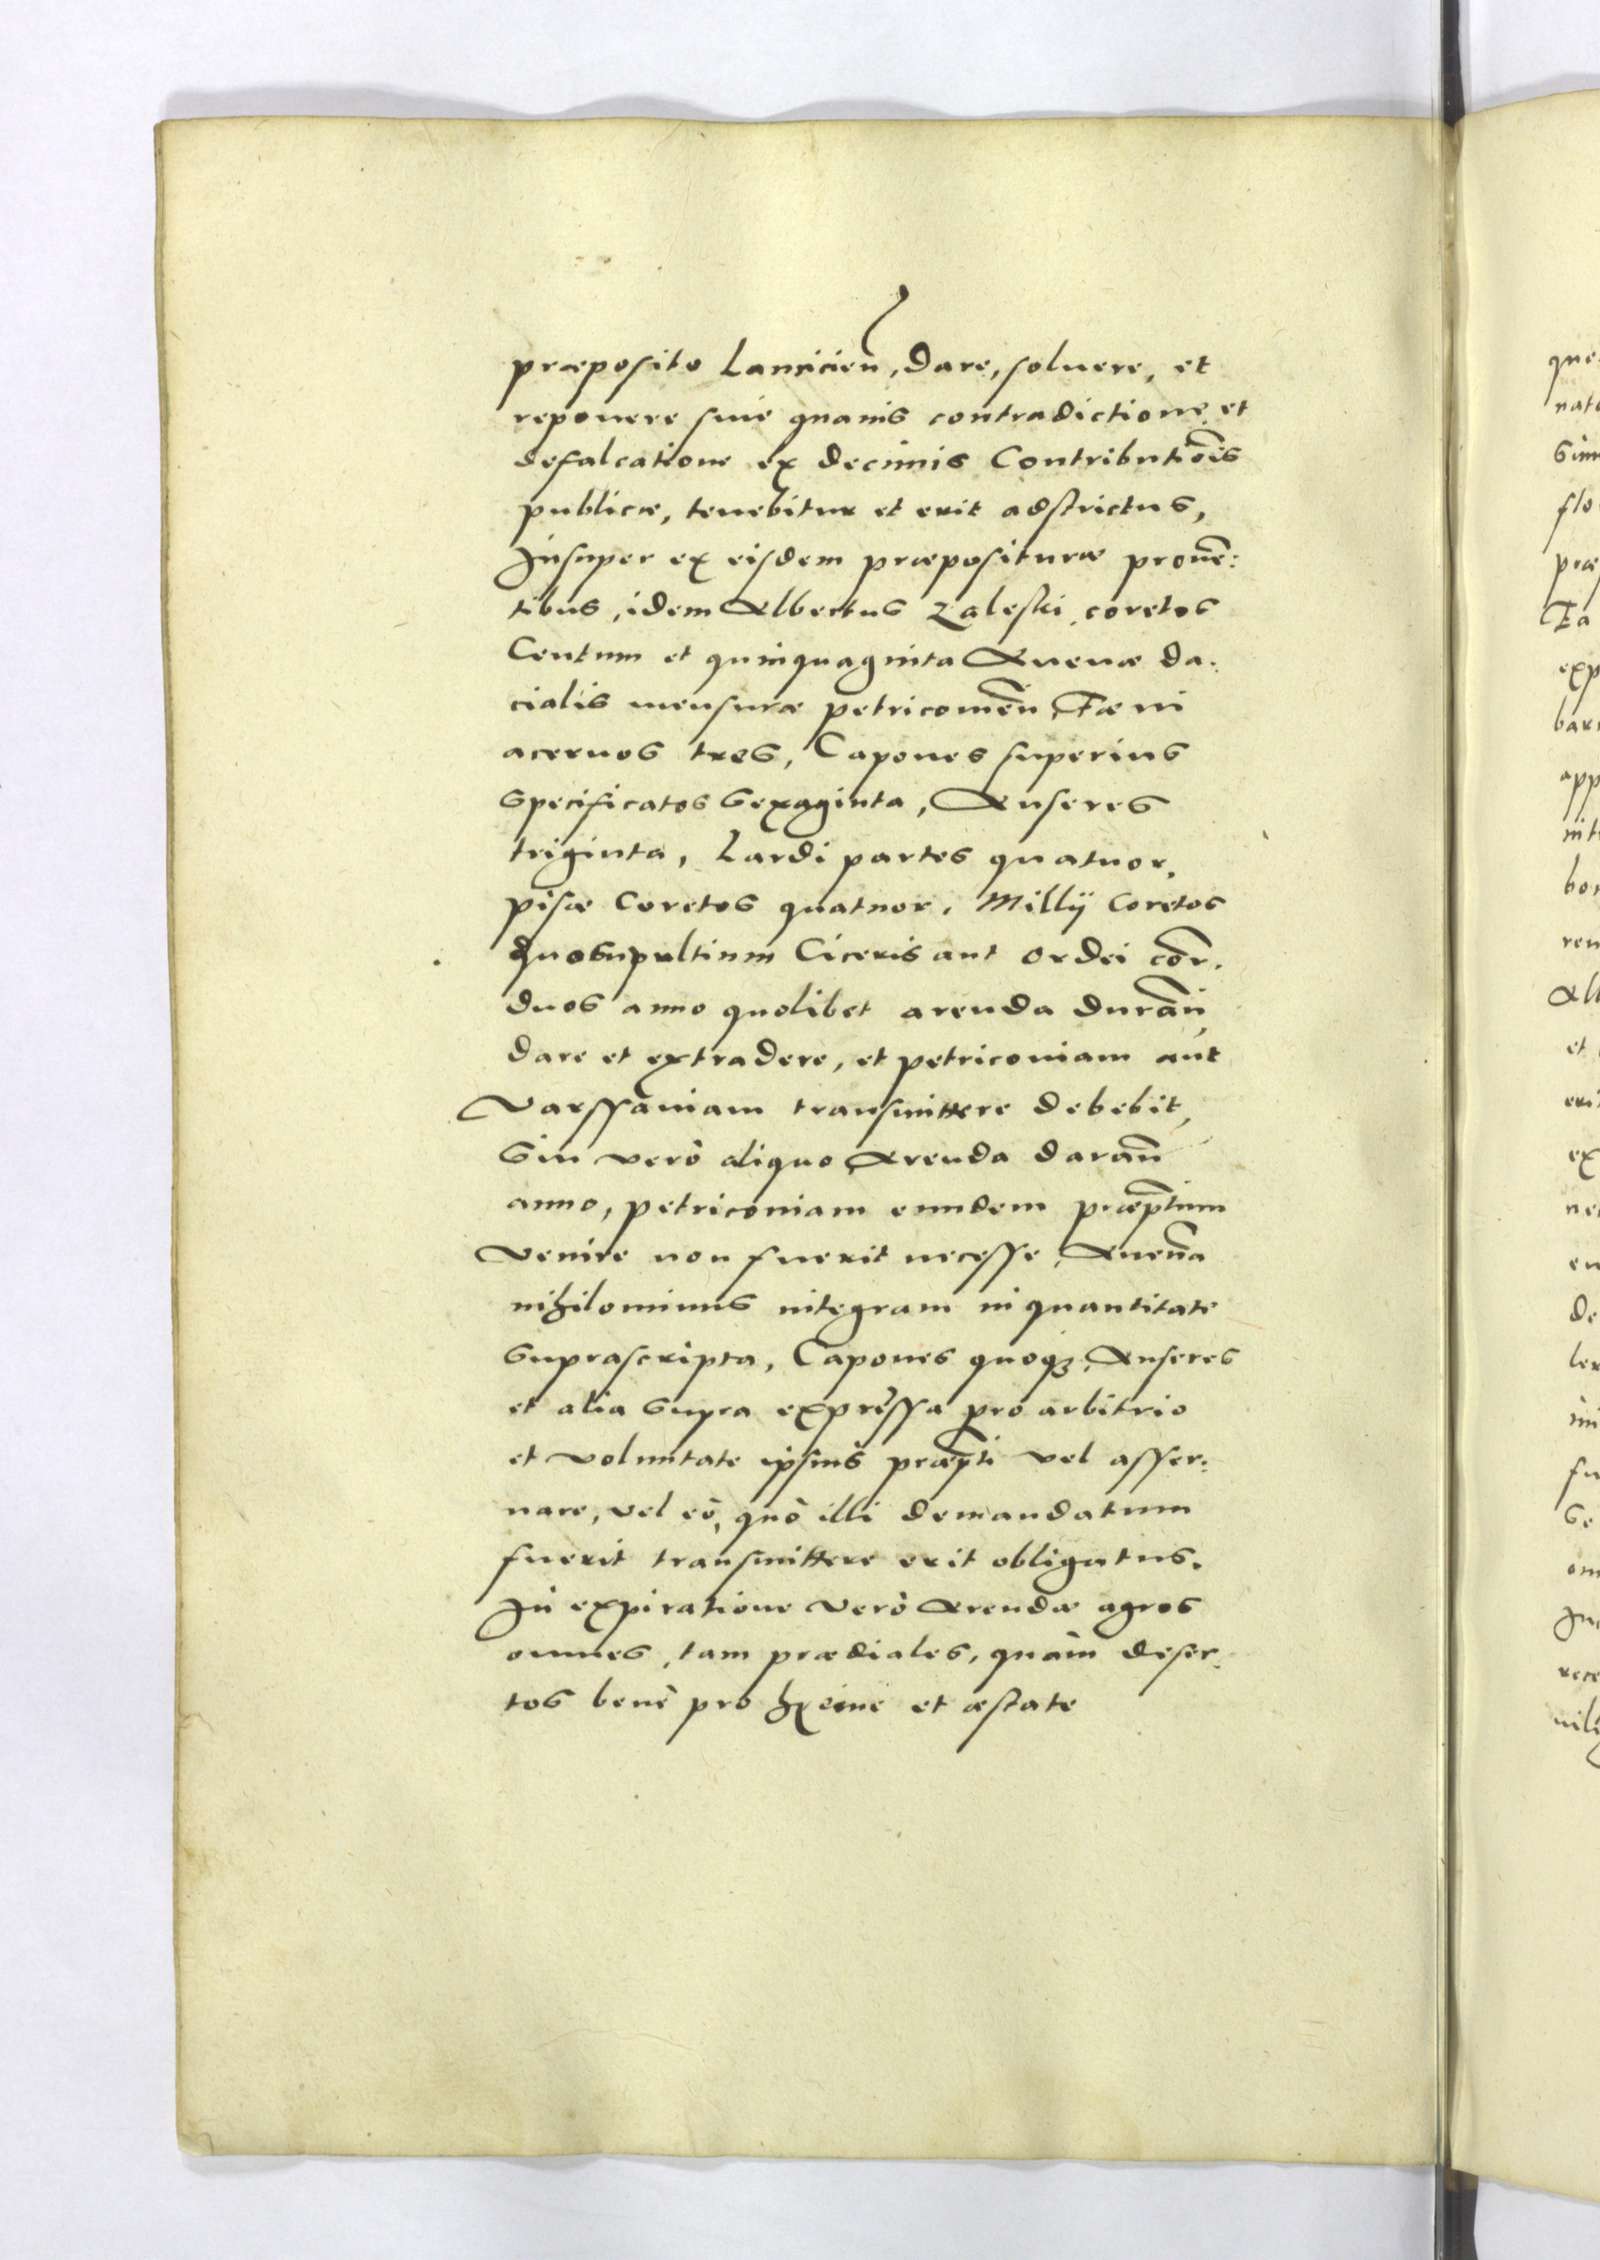 præposito Lanciciẽn, dare, soluere, et
reponere sine quauis contradictione et
defalcatione ex decimis Contributiõis
publicæ, tenebitur et erit adstrictus,
Insuper ex eisdem præposituræ prouẽ:
tibus, idem Albertus Zaleski, coretos
Centum et quinquaginta Auenæ da:
cialis mensuræ petricouiẽn, Fæni
aceruos tres, Capones superius
specificatos sexaginta, Anseres
triginta, Lardi partes quatuor,
pisæ Coretos quatuor, Millij Coretos
duos, pultium Ciceris aut ordei cor̃.
duos anno quolibet arenda durañ
dare et extradere, et petricouiam aut
Varssauiam transmittere debebit,
Sin verò aliquo Arenda darañ
anno, petricouiam eundem præp̃tum
venire non fuerit necesse, Auenã
nihilominus integram in quantitate
suprascripta, Capones quoqz, Anseres
et alia supra expressa pro arbitrio
et voluntate ipsius præp̃ti vel asser:
uare, vel eò, quò illi demandatum
fuerit transmittere erit obligatus.
In expiratione verò Arendæ agros
omnes, tam prædiales, quàm deser:
tos benè pro hyeme et æstate
que
nato
sim
flo
præ
Fa
exp
bar
app
nit
bor
ren
Alb
et
eri
ex
ne
en
de
ler
im
fu
se
om
In
rece
nili